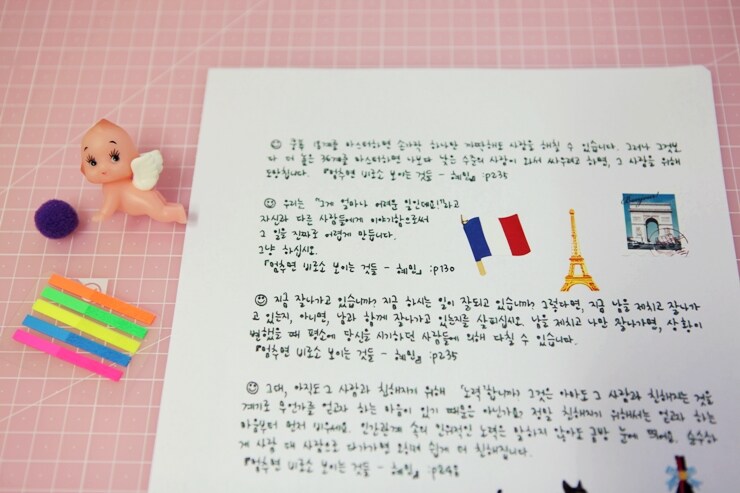 쿵푸 18계를 마스터하면 손가락 하나만 까딱해도 사람을 해칠 수 있습니다. 그러나 그것보
다 더 높은 36계를 마스터하면 나보다 낮은 수준의 사람이 와서 싸우려고 하면, 그 사람을 위해
도망칩니다. 『멈추면 비로소 보이는 것들 - 혜민』 :p235
우리는 "그게 얼마나 어려운 일인데요!"하고
자신과 다른 사람들에게 이야기함으로써
그 일을 진짜로 어렵게 만듭니다.
그냥 하십시오.
『멈추면 비로소 보이는 것들 - 혜민』 :p130
지금 잘나가고 있습니까? 지금 하시는 일이 잘되고 있습니까? 그렇다면, 지금 남을 제치고 잘나가
고 있는지, 아니면, 남과 함께 잘나가고 있는지를 살피십시오. 남을 제치고 나만 잘나가면, 상황이
변했을 때 평소에 당신을 시기하던 사람들에 의해 다칠 수 있습니다.
『멈추면 비로소 보이는 것들 - 혜민』 :p235
그대, 아직도 그 사람과 친해지기 위해 "노력"합니까? 그것은 아마도 그 사람과 친해지는 것을
계기로 무언가를 얻고자 하는 마음이 있기 때문은 아닌가요? 정말 친해지기 위해서는 얻고자 하는
마음부터 먼저 비우세요. 인간관계 속의 인위적인 노력은 말하지 않아도 금방 눈에 띄어요. 순수하
게 사람 대 사람으로 다가가면 의외로 쉽게 더 친해집니다.
『멈추면 비로소 보이는 것들 - 혜민』 :p248